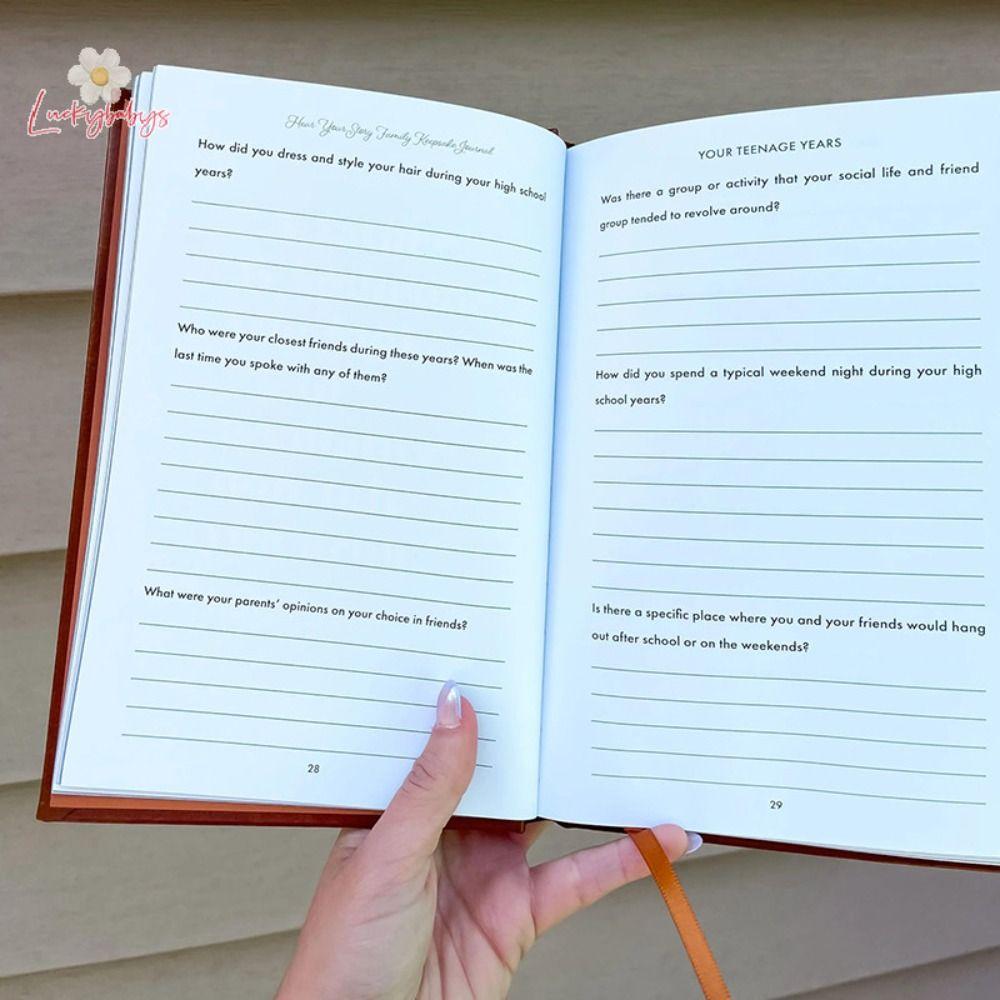 Luckybabys
Hear Your Story Family Keepsake Journal
How did you dress and style your hair during your high school
years?
Who were your closest friends during these years? When was the
last time you spoke with any of them?
What were your parents’ opinions on your choice in friends?
28
YOUR TEENAGE YEARS
Was there a group or activity that your social life and friend
group tended to revolve around?
How did you spend a typical weekend night during your high
school years?
Is there a specific place where you and your friends would hang
out after school or on the weekends?
29